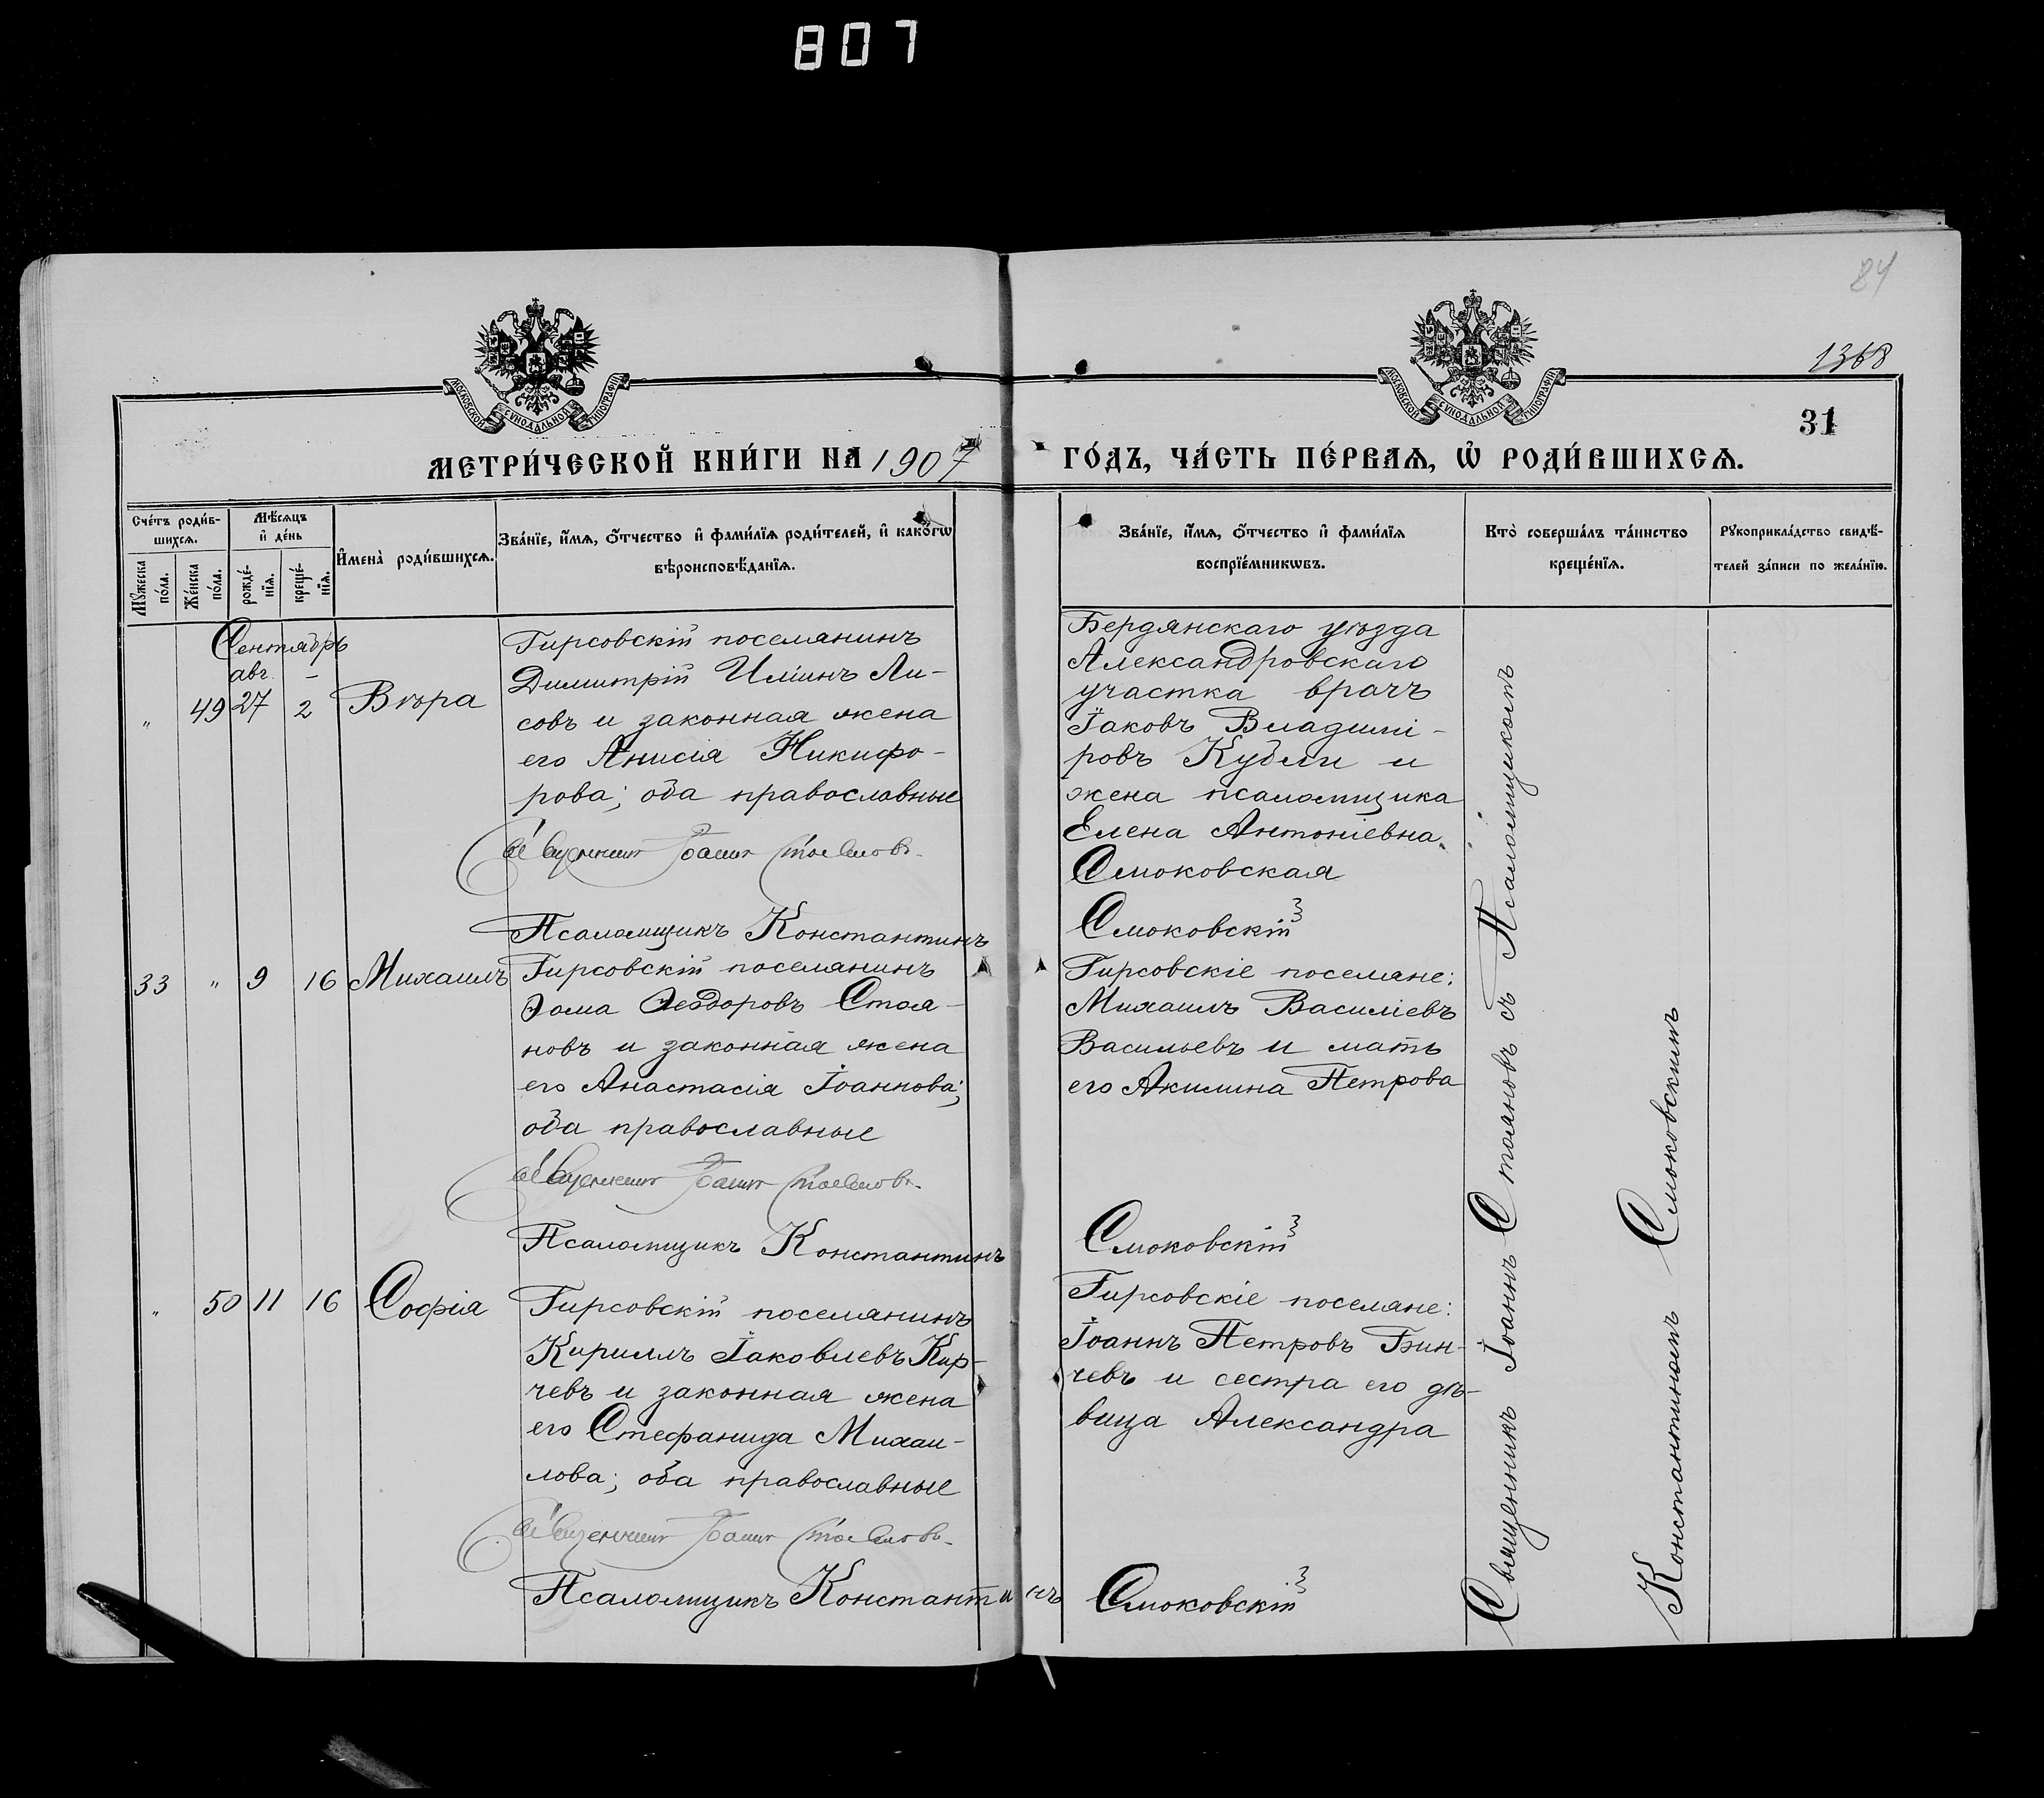 807
84
1368
31
МОСКОВСКОЙ СѴНОДАЛЬНОЙ ТИПОГРАФІИ
МОСКОВСКОЙ СѴНОДАЛЬНОЙ ТИПОГРАФІИ
МЕТРИ́ЧЕСКОЙ КНИ́ГИ НА 1907 ГО́ДЪ, ЧА́СТЬ ПЕ́РВАѦ, Ѡ҆ РОДИ́ВШИХСѦ.
Сче́тъ роди́в-
шихсѧ.
Мꙋ́жеска по́ла.
Же́нска по́ла.
Мѣ́сѧцъ и҆ де́нь
рожде́-нїѧ.
креще́-нїѧ.
И҆мена̀ роди́вшихсѧ.
Зва́нїе, и҆́мѧ, ѻ҆́тчество и҆ фами́лїѧ роди́телей, и҆ како́гѡ
вѣроисповѣ́данїѧ.
Зва́нїе, и҆́мѧ, ѻ҆́тчество и҆ фами́лїѧ
воспрїе́мникѡвъ.
Кто̀ соверша́лъ та́инство
креще́нїѧ.
Рꙋкоприкла́дство свидѣ́-
телей за́писи по жела́нїю.
Сентябрь
авг. –
" 49 27 2 Вѣра
Гирсовскій поселянинъ
Димитрій Иліинъ Ли-
совъ и законная жена
его Анисія Никифо-
рова; оба православные
Священникъ Іоаннъ Стояновъ.
Псаломщикъ Константинъ Смоковскій
Бердянскаго уѣзда
Александровскаго
участка врачъ
Іаковъ Владимі-
ровъ Кубли и
жена псаломщика
Елена Антоніевна
Смоковская
33 " 9 16 Михаилъ
Гирсовскій поселянинъ
Ѳома Ѳеодоровъ Стоя-
новъ и законная жена
его Анастасія Іоаннова;
оба православные
Священникъ Іоаннъ Стояновъ.
Псаломщикъ Константинъ Смоковскій
Гирсовскіе поселяне:
Михаилъ Василіевъ
Васильевъ и мать
его Акилина Петрова
" 50 11 16 Софія
Гирсовскій поселянинъ
Кириллъ Іаковлевъ Кир-
чевъ и законная жена
его Стефанида Михаи-
лова; оба православные
Священникъ Іоаннъ Стояновъ.
Псаломщикъ Константинъ Смоковскій
Гирсовскіе поселяне:
Іоаннъ Петровъ Бин-
чевъ и сестра его дѣ-
вица Александра
Священникъ Іоаннъ Стояновъ съ Псаломщикомъ
Константиномъ Смоковскимъ